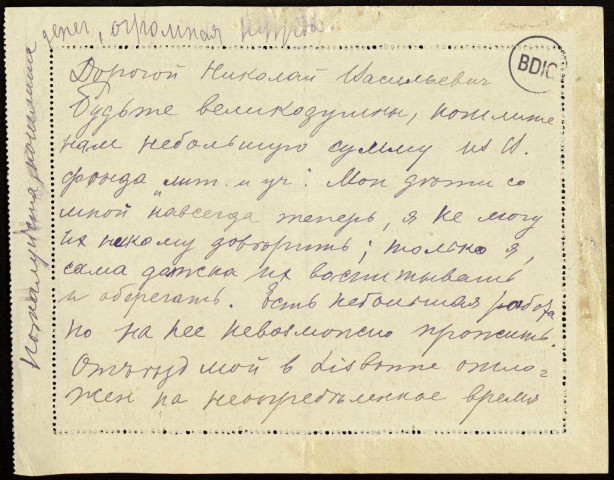 денег, огромная нужда.
Пожалуйста, пошлите
BDIC
Дорогой Николай Васильевич
Будьте великодушны, пошлите
нам небольшую сумму из И.
фонда "лит. и уч". Мои дети со
мной навсегда теперь, я не могу
их никому доверить; только я,
сама должна их воспитывать
и оберегать. Есть небольшая работа
но на нее невозможно прожить.
Отъезд мой в Lisbonne отло=
жен на неопределенное время